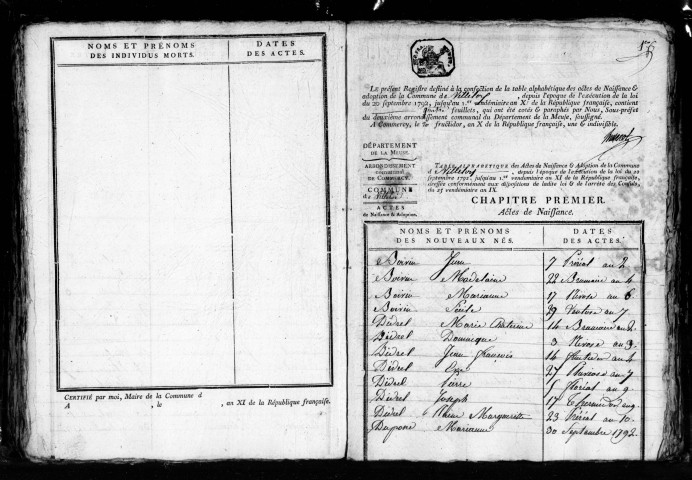 NOMS ET PRÉNOMS
DES INDIVIDUS MORTS.
DATES
DES ACTES.
CERTIFIÉ par moi, Maire de la Commune d
A , le , an XI de la République française.
LE présent Registre destiné à la confection de la table alphabétique des actes de Naissance &
adoption de la Commune de , depuis l'époque de l'exécution de la loi
du 20 septembre 1792, jusqu'au 1.er vendémiaire an XI de la République française, contient
feuillets, qui ont été cotés & paraphés par Nous, Sous-préfet
du deuxième arrondissement communal du Département de la Meuse, soussigné.
A Commercy, le fructidor, an X de la République française, une & indivisible.
DÉPARTEMENT
DE LA MEUSE.
ARRONDISSEMENT
COMMUNAL
DE COMMERCY.
COMMUNE
de
ACTES
de Naissance & Adoption.
TABLE ALPHABÉTIQUE des Actes de Naissance & Adoption de la Commune
d , depuis l'époque de l'exécution de la loi du 20
septembre 1792, jusqu'au 1.er vendémiaire an XI de la République française,
dressée conformément aux dispositions de ladite loi & de l'arrêté des Consuls,
du 25 vendémiaire an IX.
CHAPITRE PREMIER.
Actes de Naissance.
NOMS ET PRÉNOMS
DES NOUVEAUX NÉS.
DATES
DES ACTES.
Boivin Jean 7 Préréal an 2
Boivin Madelaine 22 Brumaire an 4
Boivin Marianne 17 Nivose an 6
Boivin 29 Ventose an 7
Didrel Marie Catherine 14 Brumaire an 2
Didrel Dominique 3 Nivose an 3
Didrel Jean François 14 an 4
Didrel 27 an 7
Didrel Pierre 1 Floréal an 9
Didrel Joseph 17 Thermidor an 9
Didrel Marguerite 23 Préréal an 10
Dupone Marianne 30 Septembre 1792